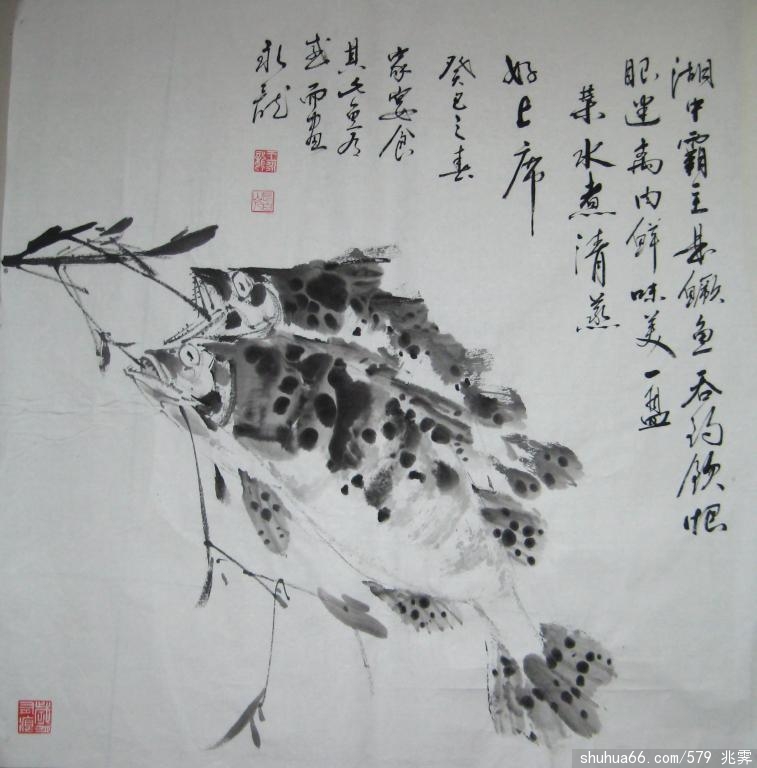 湖中霸主是鳜鱼吞钓饮恨
眼迷离肉鲜味美一盘
菜水煮清蒸
好上席
癸巳之春
家宴食
其鱼有
感而画
永龙
shuhua66.com/579 兆霁